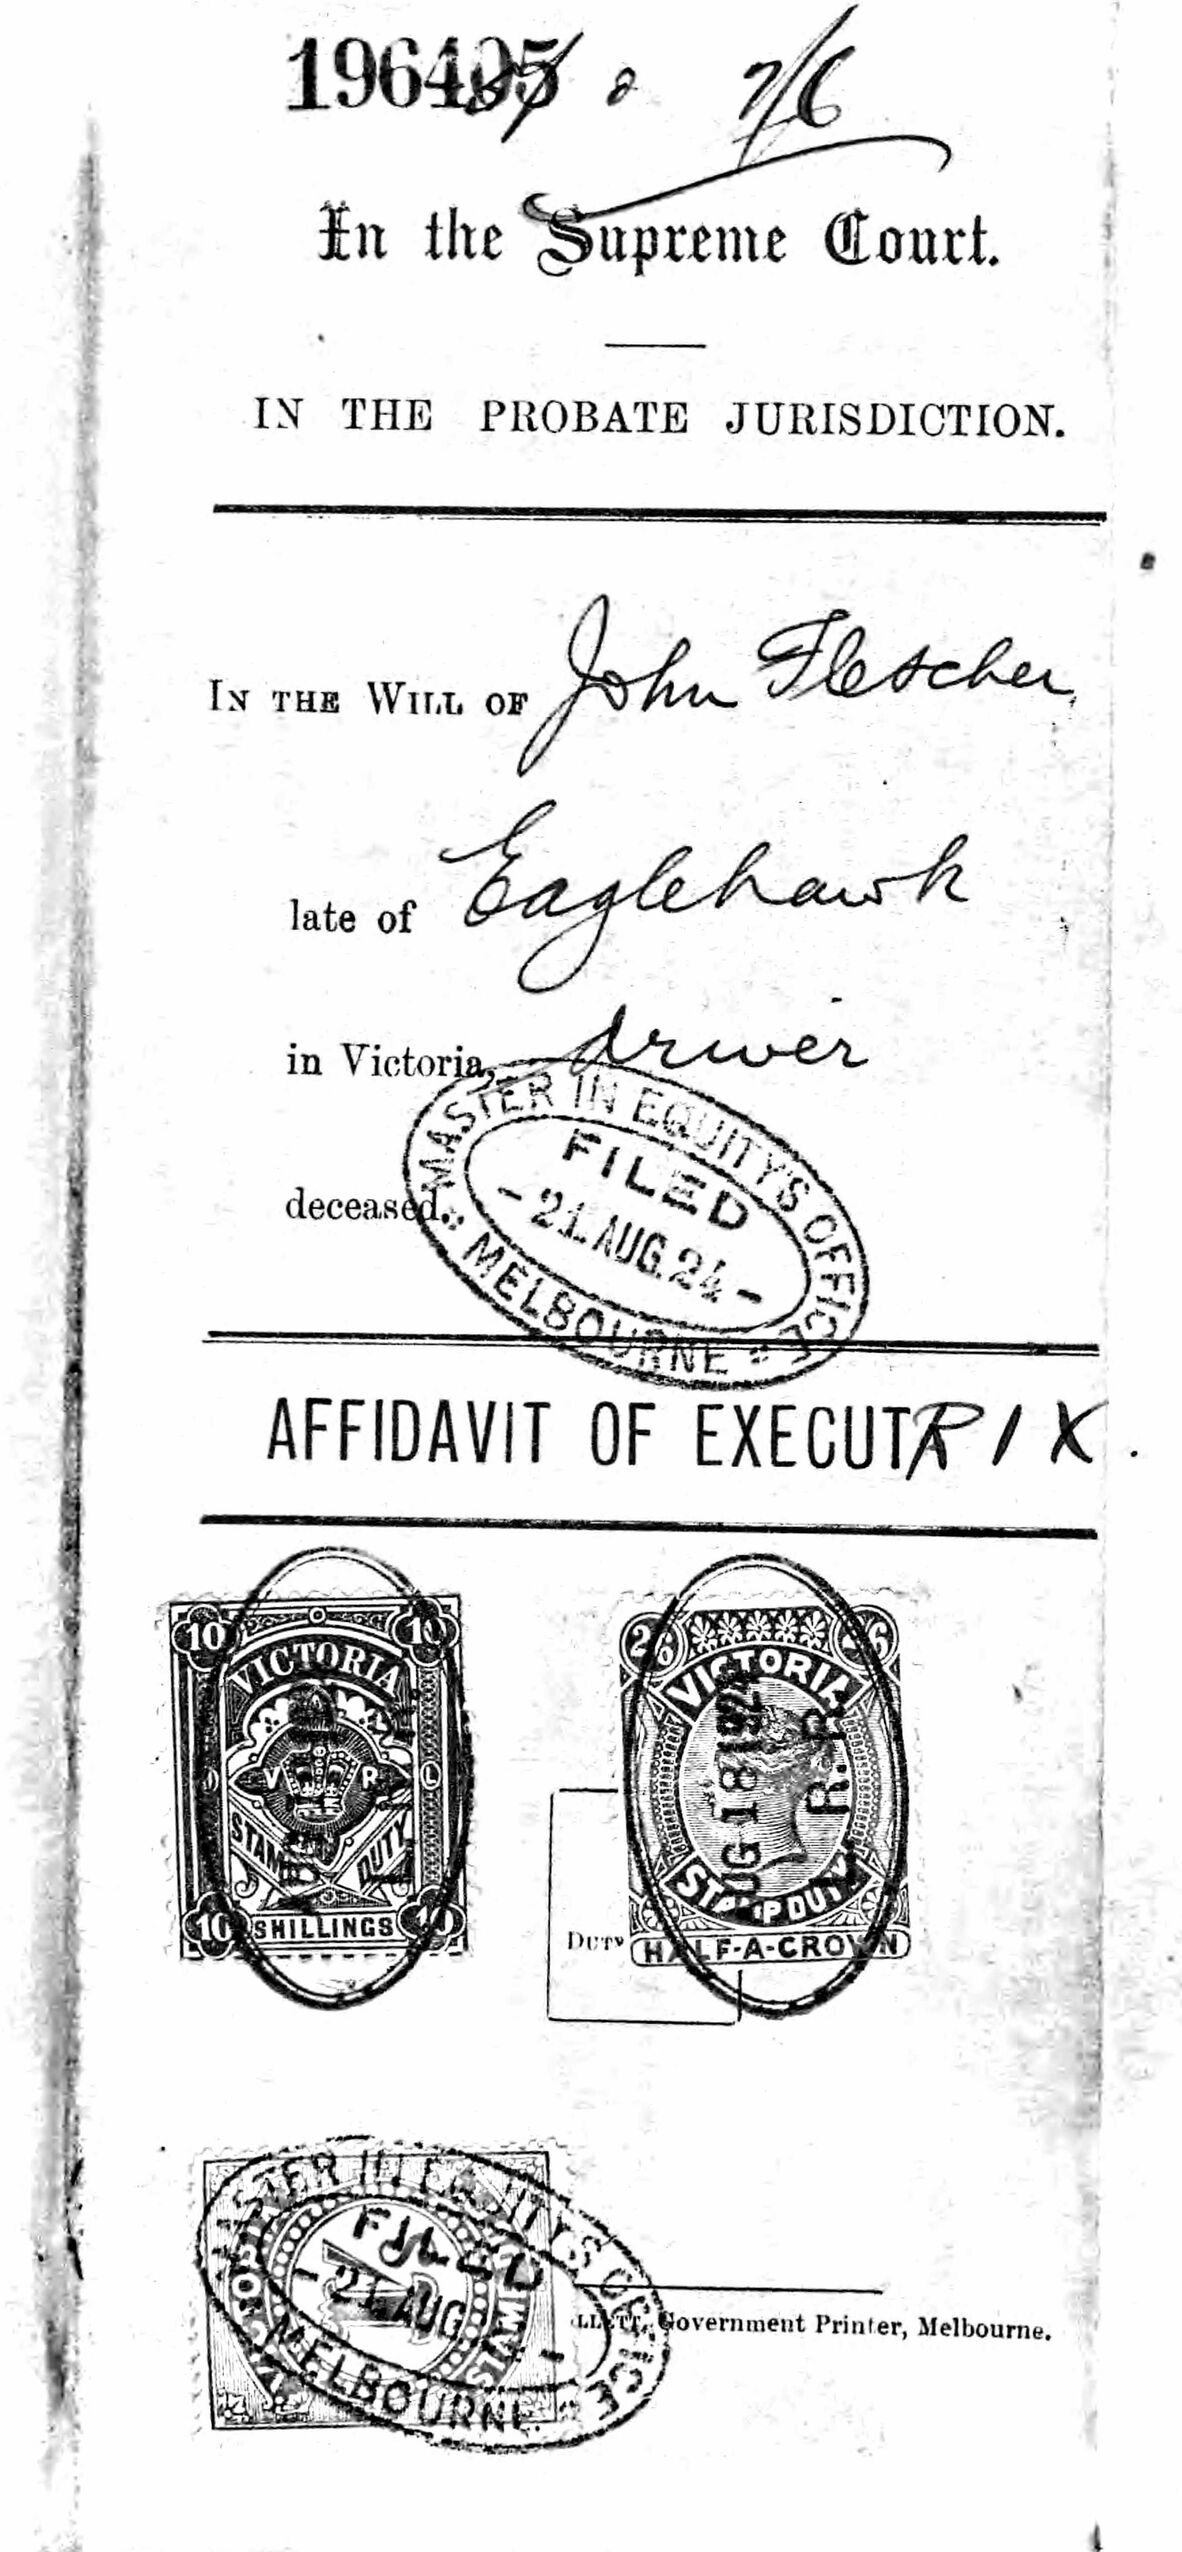 196405 7/6
In the Supreme Court.
IN THE PROBATE JURISDICTION.
IN THE WILL OF John Fletcher,
late of Eaglehawk
in Victoria, driver
deceased.
MASTER IN EQUITY'S OFFICE
FILED
- 21. AUG. 24 -
MELBOURNE
AFFIDAVIT OF EXECUTRIX.
10 10
VICTORIA
V R
STAMP DUTY
10 SHILLINGS 10
2/6 2/6
VICTORIA
UG 18 1924
R.R.
STAMP DUTY
DUTY HALF-A-CROWN
MASTER IN EQUITY'S OFFICE
FILED
- 21. AUG -
MELBOURNE
Government Printer, Melbourne.